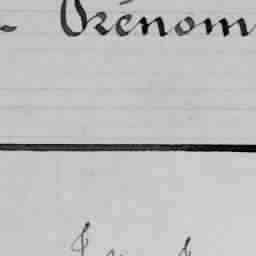 - Prénom